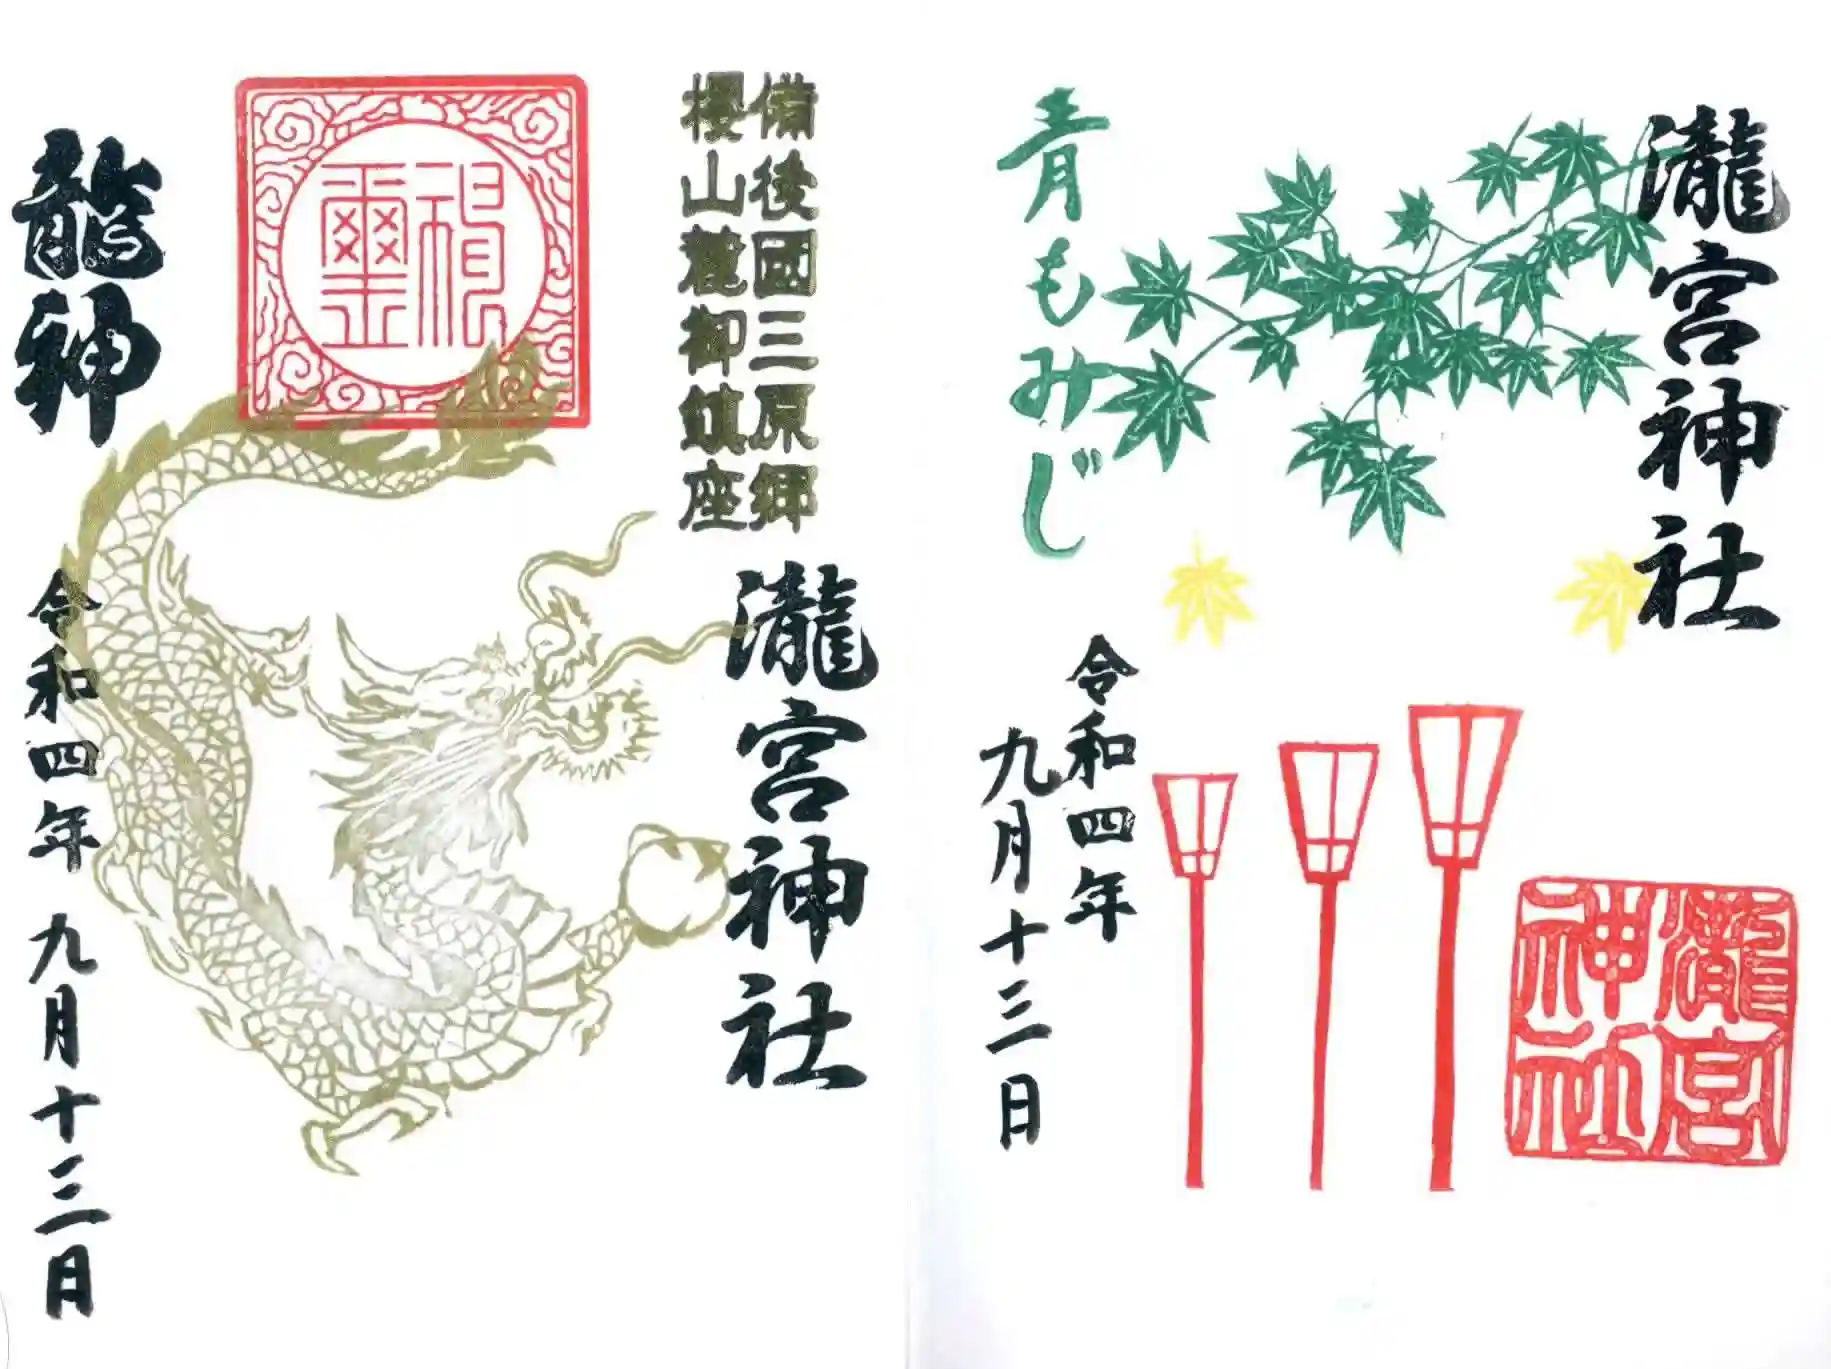 瀧宮神社
青もみじ
令和四年
九月十三日
瀧宮
神社
備後國三原郷
櫻山麓御鎮座
瀧宮神社
龍神
令和四年 九月十三日